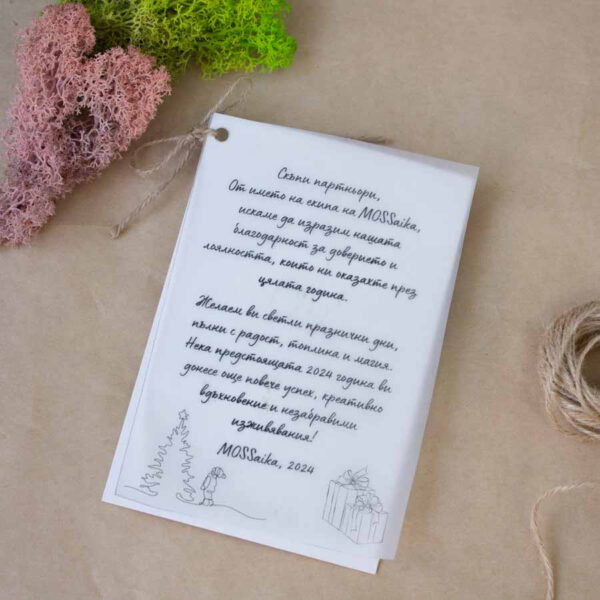 Скъпи партньори,
От името на екипа на MOSSaika,
искаме да изразим нашата
благодарност за доверието и
лоялността, които ни оказахте през
цялата година.
Желаем ви светли празнични дни,
пълни с радост, топлина и магия.
Нека предстоящата 2024 година ви
донесе още повече успех, креативно
вдъхновение и незабравими
изживявания!
MOSSaika, 2024